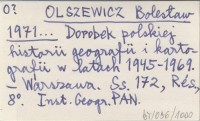 O?
OLSZEWICZ Bolesław
1971... Dorobek polskiej
historii geografii i karto-
grafii w latach 1945-1969.
– Warszawa. Ss. 172, Rés,
8°. Inst. Geogr. PAN.